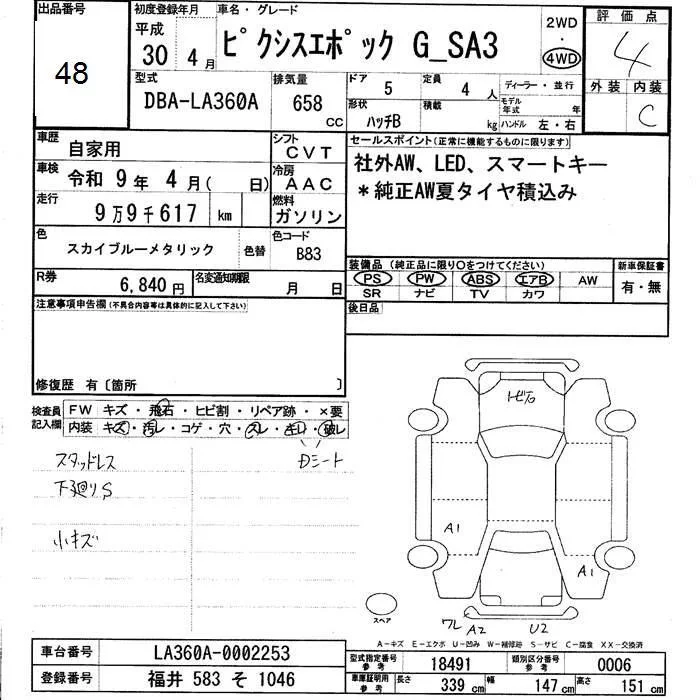 出品番号 初度登録年月 車名・グレード 評価点
48 平成 30年 4月 ピクシスエポック G_SA3 2WD・4WD 4
型式 DBA-LA360A 排気量 658 CC ドア 5 定員 4人 ディーラー・並行 外装 内装 C
形状 ハッチB 積載 kg モデル年式 年 ハンドル 左・右
車歴 自家用 シフト CVT セールスポイント(正常に機能するものに限ります)
車検 令和 9年 4月( 日) 冷房 AAC 社外AW、LED、スマートキー
走行 9万9千617 km 燃料 ガソリン *純正AW夏タイヤ積込み
色 スカイブルーメタリック 色替 色コード B83
R券 6,840円 名変通知期限 月 日 装備品(純正品に限り○をつけてください) 新車保証書
PS PW ABS エアB AW 有・無
SR ナビ TV カワ
注意事項申告欄(不具合内容等は具体的に記入して下さい) 後日品
修復歴 有〔箇所 〕
検査員記入欄 FW キズ・飛石・ヒビ割・リペア跡・×要
内装 キズ・汚レ・コゲ・穴・スレ・キレ・破レ
スタッドレス Dシート
下廻りS
小キズ
トビ石
A1
A1
ワレ A2 U2
スペア
A-キズ E-エクボ U-凹み W-補修跡 S-サビ C-腐食 XX-交換済
車台番号 LA360A-0002253 型式指定番号 参考 18491 類別区分番号 参考 0006
登録番号 福井 583 そ 1046 車庫証明用 参考 長さ 339 cm 幅 147 cm 高さ 151 cm